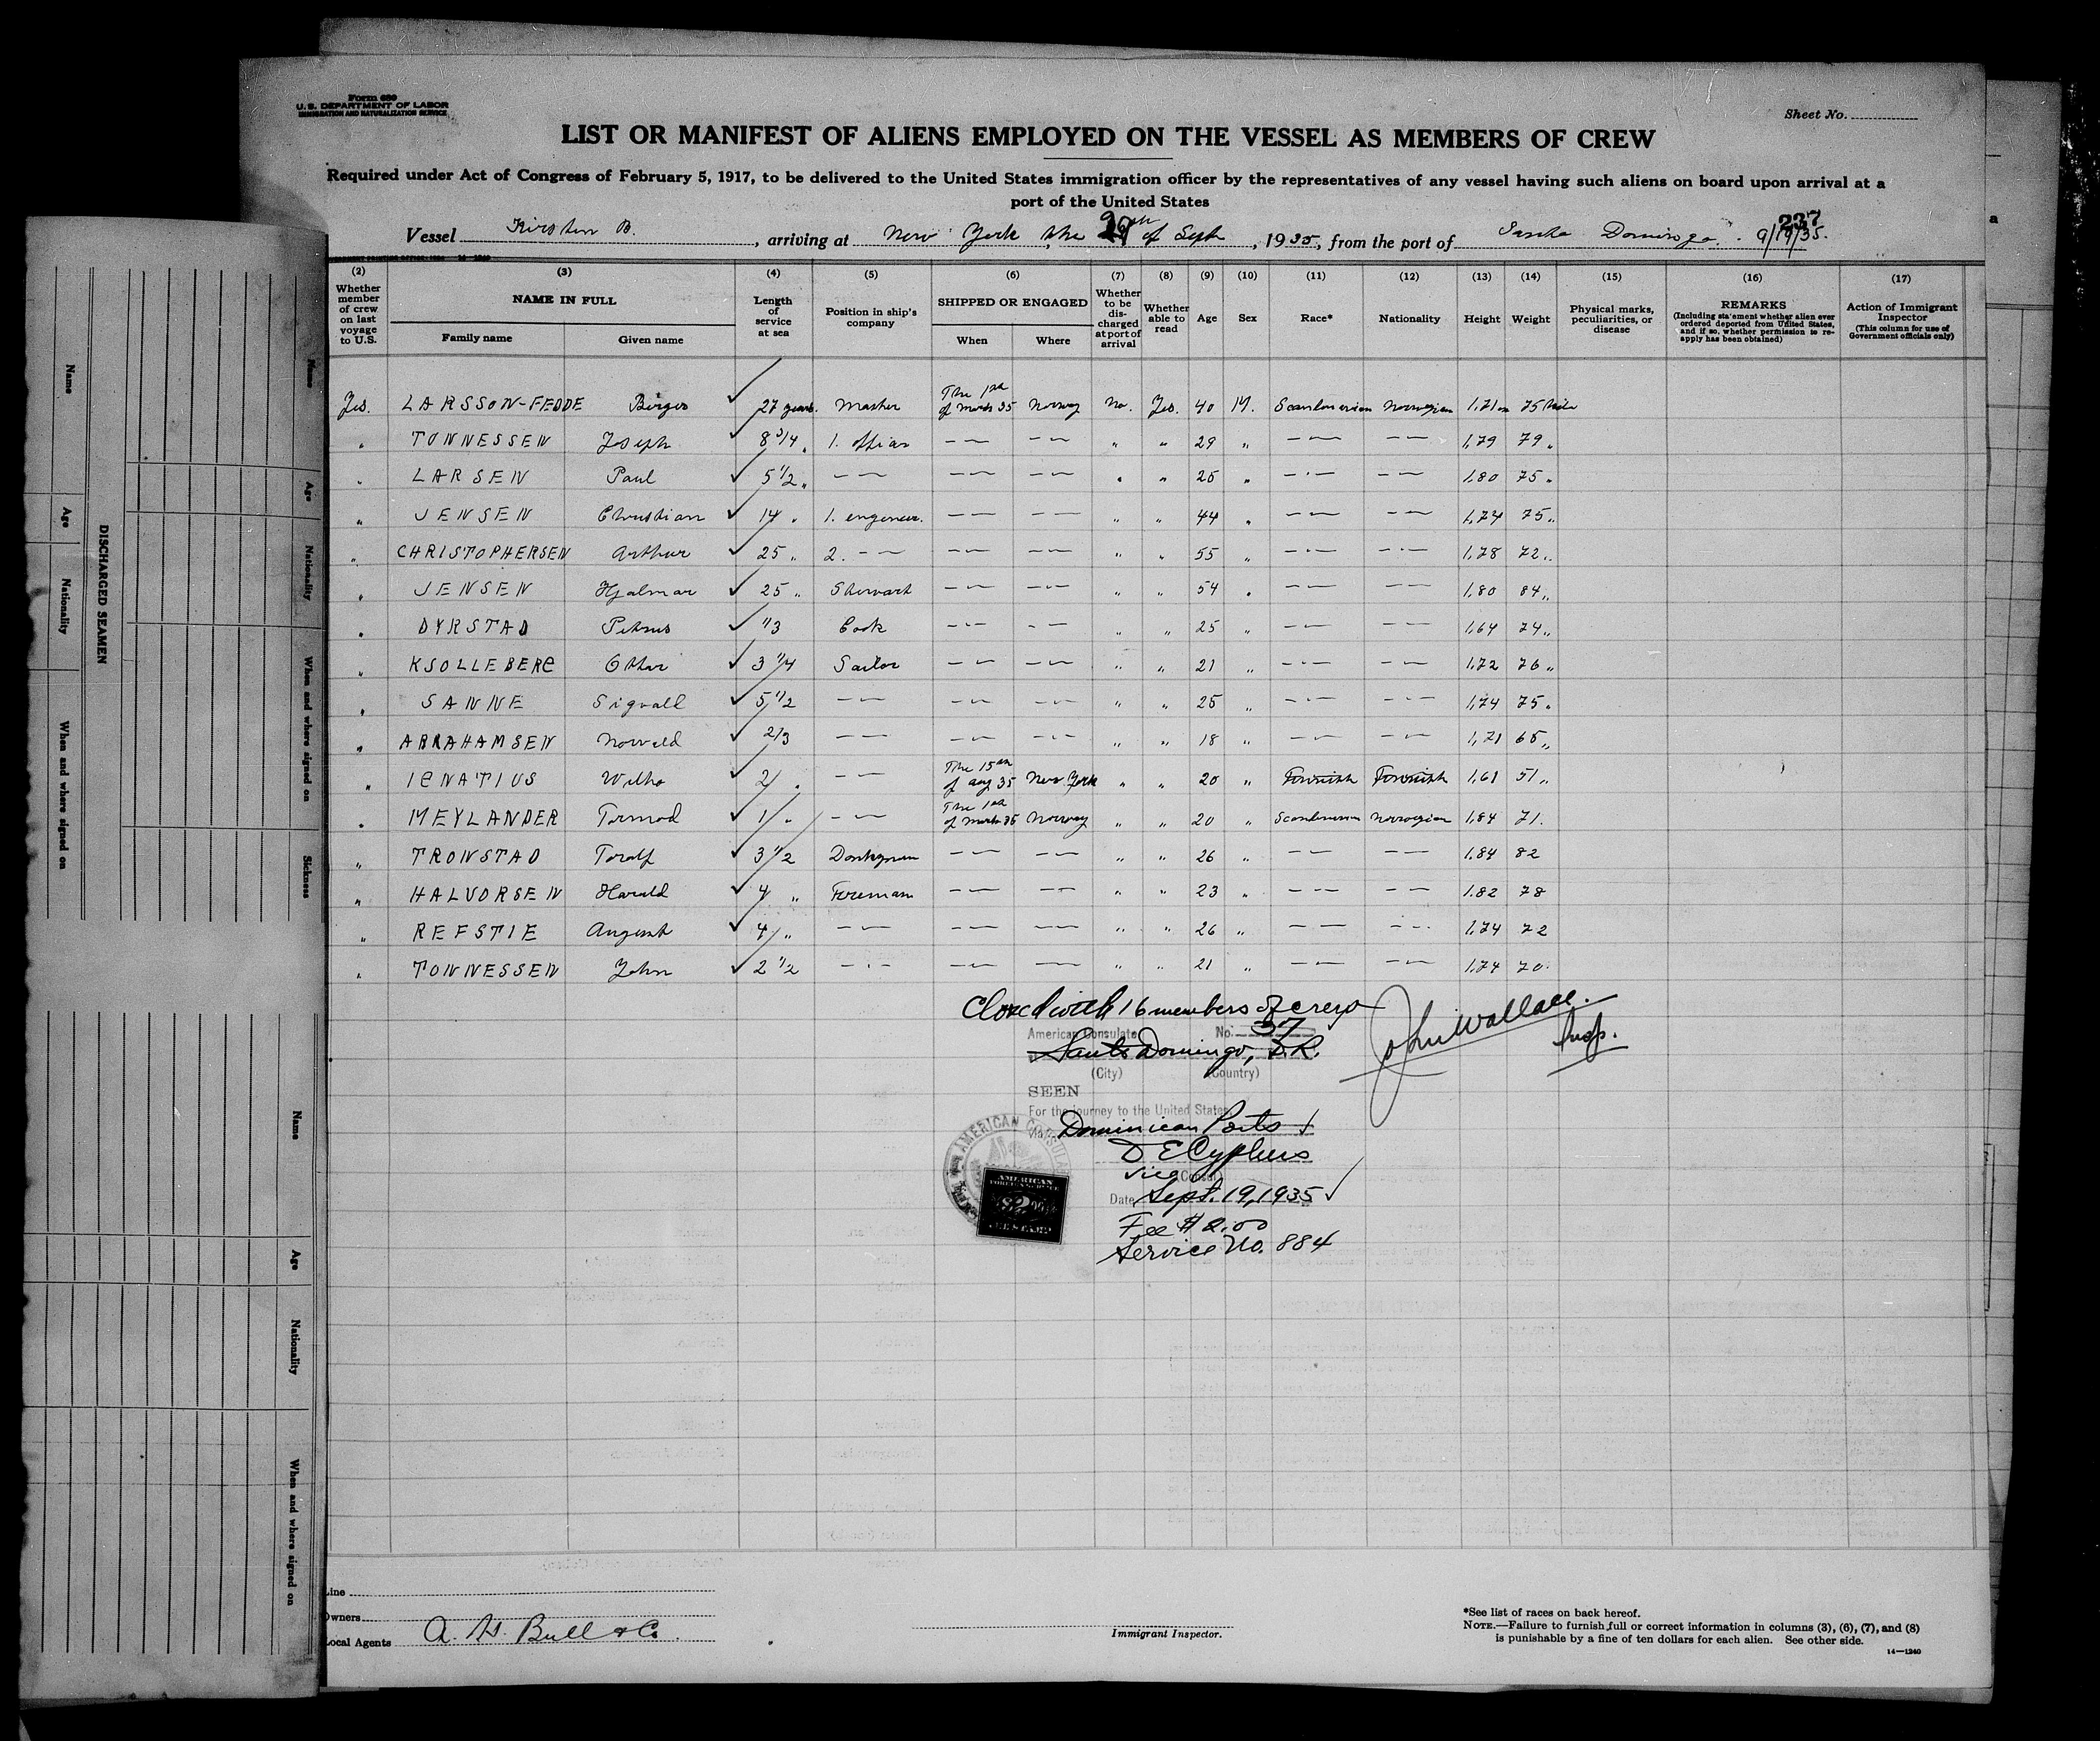 Form 680
U. S. DEPARTMENT OF LABOR
IMMIGRATION AND NATURALIZATION SERVICE
Sheet No.
LIST OR MANIFEST OF ALIENS EMPLOYED ON THE VESSEL AS MEMBERS OF CREW
Required under Act of Congress of February 5, 1917, to be delivered to the United States immigration officer by the representatives of any vessel having such aliens on board upon arrival at a
port of the United States
237
Vessel Kirsten B. , arriving at New York the of Sept , 1935, from the port of Santo Domingo. 9/19/35.
(2) (3) (4) (5) (6) (7) (8) (9) (10) (11) (12) (13) (14) (15) (16) (17)
Whether member of crew on last voyage to U.S. NAME IN FULL Family name Given name Length of service at sea Position in ship's company SHIPPED OR ENGAGED When Where Whether to be discharged at port of arrival Whether able to read Age Sex Race* Nationality Height Weight Physical marks, peculiarities, or disease REMARKS (Including statement whether alien ever ordered deported from United States, and if so, whether permission to reapply has been obtained) Action of Immigrant Inspector (This column for use of Government officials only)
Yes. LARSSON-FEDDE Birger 27 years. Master The 1st of March 35 Norway No. Yes. 40 M. Scandinavian Norwegian 1,71 m 75 kilo
„ TONNESSEN Joseph 8 3/4 „ 1. officer — — — — „ „ 29 „ — — — — 1,79 79 „
„ LARSEN Paul 5 1/2 „ — — — — — — „ „ 25 „ — — — — 1,80 75 „
„ JENSEN Christian 14 „ 1. engeneer. — — — — „ „ 44 „ — — — — 1,74 75 „
„ CHRISTOPHERSEN Arthur 25 „ 2. — — — — — — „ „ 55 „ — — — — 1,78 72 „
„ JENSEN Hjalmar 25 „ Stewart — — — — „ „ 54 „ — — — — 1,80 84 „
„ DYRSTAD Petrus 1/3 Cook — — — — „ „ 25 „ — — — — 1,64 74 „
„ KSOLLEBERG Ottar 3 1/4 Sailor — — — — „ „ 21 „ — — — — 1,72 76 „
„ SANNE Sigvall 5 1/2 — — — — — — „ „ 25 „ — — — — 1,74 75 „
„ ABRAHAMSEN Norvald 2/3 — — — — — — „ „ 18 „ — — — — 1,71 65 „
„ IGNATIUS Wilho 2 „ — — The 15th of aug 35 New York „ „ 20 „ Finnish Finnish 1,61 51 „
„ MEYLANDER Tormod 1 „ — — The 1st of March 35 Norway „ „ 20 „ Scandinavian Norwegian 1,84 71.
„ TRONSTAD Toralf 3 1/2 Donkeyman — — — — „ „ 26 „ — — — — 1.84 82
„ HALVORSEN Harald 4 „ Fireman — — — — „ „ 23 „ — — — — 1.82 78
„ REFSTIE August 4 „ — — — — — — „ „ 26 „ — — — — 1.74 72
„ TONNESSEN John 2 1/2 — — — — — — „ „ 21 „ — — — — 1.74 70.
Closed with 16 members of crew
John Wallace. Insp.
American Consulate No. 37
Santo Domingo, D.R.
(City) (Country)
SEEN
For the journey to the United States
via Dominican Ports
D E Cyphers
Vice Consul
Date Sept. 19, 1935
Fee $2.00
Service No. 884
AMERICAN CONSULATE
AMERICAN
FOREIGN SERVICE
$2.00
FEE STAMP
Line
Owners
Local Agents A. H. Bull & Co.
Immigrant Inspector.
*See list of races on back hereof.
NOTE.—Failure to furnish full or correct information in columns (3), (6), (7), and (8)
is punishable by a fine of ten dollars for each alien. See other side.
14—1240
DISCHARGED SEAMEN
Name Age Nationality When and where signed on
Name Age Nationality When and where signed on Sickness
Name Age Nationality When and where signed on